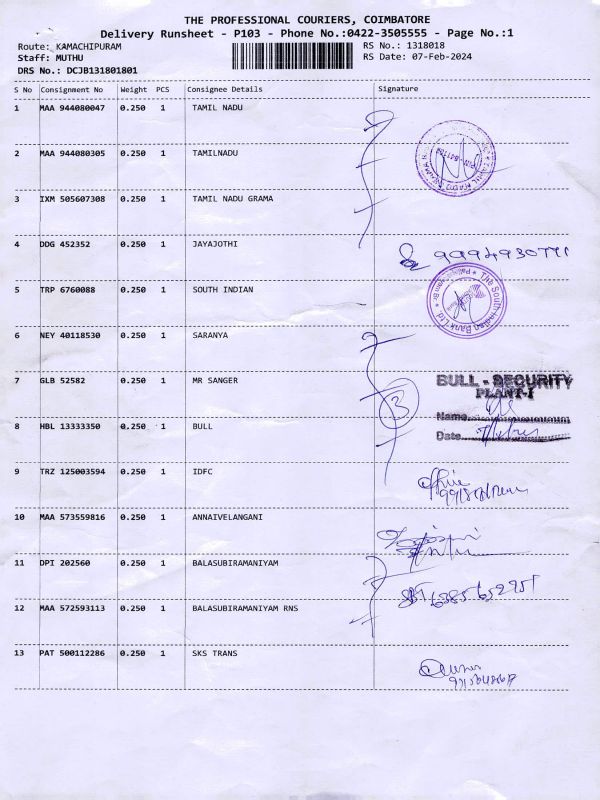 THE PROFESSIONAL COURIERS, COIMBATORE
Delivery Runsheet - P103 - Phone No.:0422-3505555 - Page No.:1
Route: KAMACHIPURAM RS No.: 1318018
Staff: MUTHU RS Date: 07-Feb-2024
DRS No.: DCJB131801801
S No Consignment No Weight PCS Consignee Details Signature
1 MAA 944080047 0.250 1 TAMIL NADU
2 MAA 944080305 0.250 1 TAMILNADU
3 IXM 505607308 0.250 1 TAMIL NADU GRAMA
4 DDG 452352 0.250 1 JAYAJOTHI
5 TRP 6760088 0.250 1 SOUTH INDIAN
The South Indian Bank Ltd.
6 NEY 40118530 0.250 1 SARANYA
7 GLB 52582 0.250 1 MR SANGER
BULL - SECURITY
PLANT-I
3
Name
Date
8 HBL 13333350 0.250 1 BULL
9 TRZ 125003594 0.250 1 IDFC
10 MAA 573559816 0.250 1 ANNAIVELANGANI
11 DPI 202560 0.250 1 BALASUBIRAMANIYAM
12 MAA 572593113 0.250 1 BALASUBIRAMANIYAM RNS
13 PAT 500112286 0.250 1 SKS TRANS